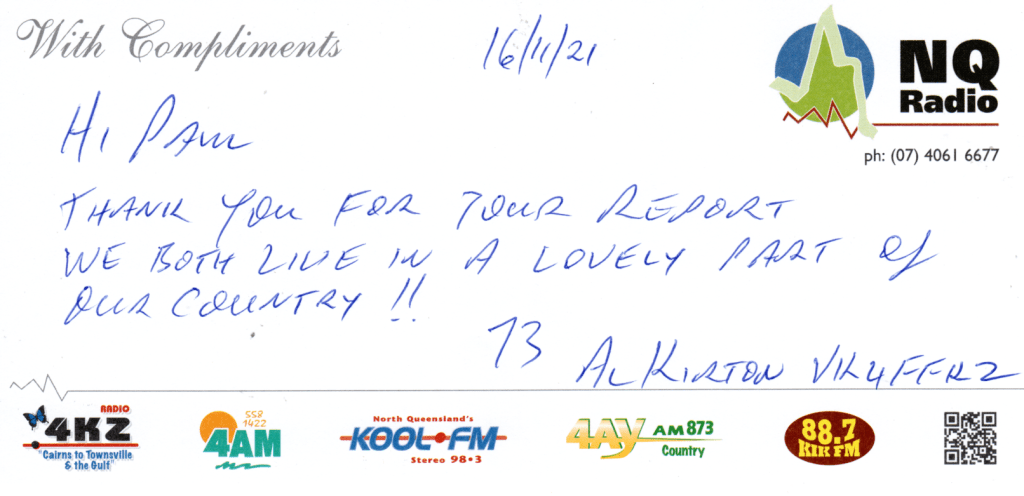 With Compliments
16/11/21
NQ
Radio
ph: (07) 4061 6677
HI PAUL
THANK YOU FOR YOUR REPORT
WE BOTH LIVE IN A LOVELY PART OF
OUR COUNTRY !!
73
AL KIRTON VK4FFRZ
RADIO
4KZ
"Cairns to Townsville
& the Gulf"
558
1422
4AM
North Queensland's
KOOL•FM
Stereo 98•3
4AY AM 873
Country
88.7
KIK FM